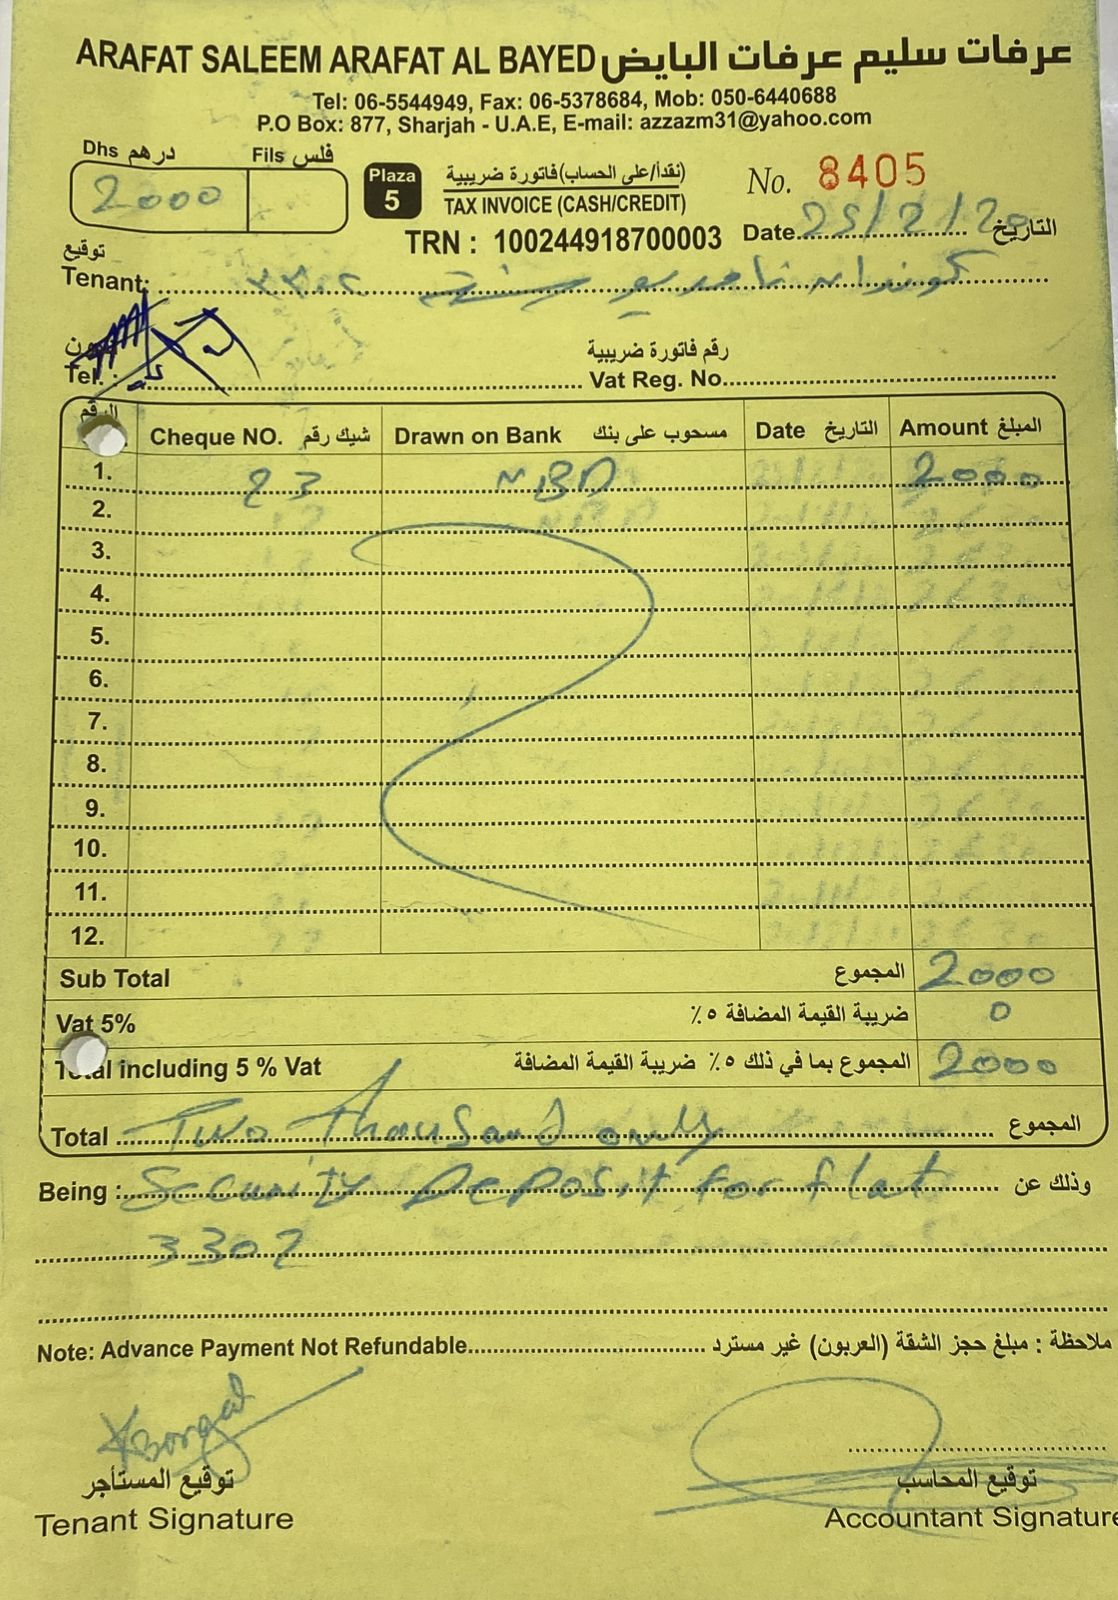 ARAFAT SALEEM ARAFAT AL BAYED عرفات سليم عرفات البايض
Tel: 06-5544949, Fax: 06-5378684, Mob: 050-6440688
P.O Box: 877, Sharjah - U.A.E, E-mail: azzazm31@yahoo.com
Dhs درهم Fils فلس
2000
Plaza 5
(نقدا/على الحساب) فاتورة ضريبية
TAX INVOICE (CASH/CREDIT)
No. 8405
TRN : 100244918700003
Date 25/2/20 التاريخ
توقيع
Tenant: ٣٣٠٢
رقم فاتورة ضريبية
Tel. : Vat Reg. No.
الرقم Cheque NO. شيك رقم Drawn on Bank مسحوب على بنك Date التاريخ Amount المبلغ
1. 23 NBD 2000
2.
3.
4.
5.
6.
7.
8.
9.
10.
11.
12.
Sub Total المجموع 2000
Vat 5% ضريبة القيمة المضافة ٥٪ 0
Total including 5 % Vat المجموع بما في ذلك ٥٪ ضريبة القيمة المضافة 2000
Total Two thousand only المجموع
Being : Security Deposit for flat وذلك عن
3302
Note: Advance Payment Not Refundable ملاحظة : مبلغ حجز الشقة (العربون) غير مسترد
توقيع المستأجر توقيع المحاسب
Tenant Signature Accountant Signature